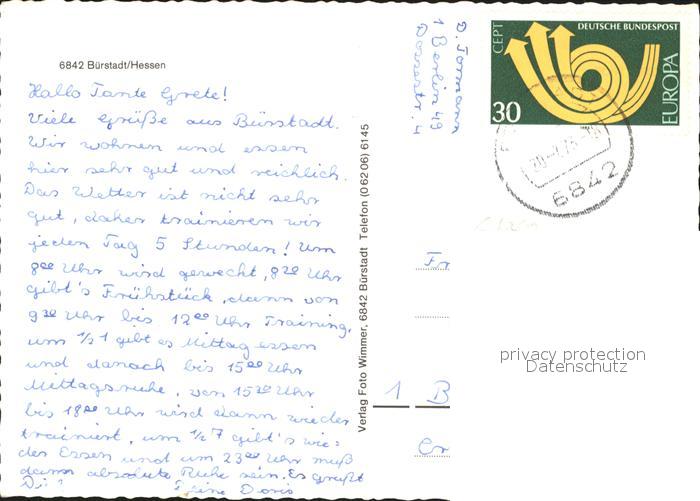 6842 Bürstadt/Hessen
Hallo Tante Grete!
Viele Grüße aus Bürstadt.
Wir wohnen und essen
hier sehr gut und reichlich.
Das Wetter ist nicht sehr
gut, daher trainieren wir
jeden Tag 5 Stunden! Um
8⁰⁰ Uhr wird geweckt, 8³⁰ Uhr
gibt's Frühstück, dann von
9³⁰ Uhr bis 12⁰⁰ Uhr Training,
um 1/2 1 gibt es Mittagessen
und danach bis 15⁰⁰ Uhr
Mittagsruhe, von 15³⁰ Uhr
bis 18⁰⁰ Uhr wird dann wieder
trainiert, um 1/2 7 gibt's wie=
der Essen und um 23⁰⁰ Uhr muß
dann absolute Ruhe sein. Es grüßt
Dich Deine Doris
Verlag Foto Wimmer, 6842 Bürstadt Telefon (06206) 6145
D. Tormann
1 Berlin 49
4
CEPT
DEUTSCHE BUNDESPOST
EUROPA
30
6842
Fr
1 B
Er
privacy protection
Datenschutz